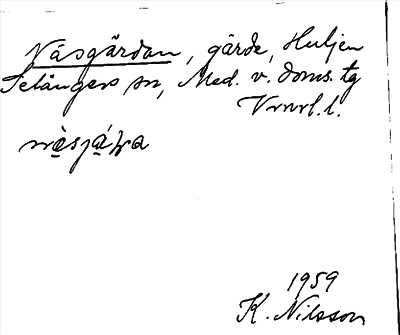 Näsgärdan, gärde, Huljen
Selångers sn, Med. v. doms. tg
Vrnrl. l.
1959
K. Nilsson